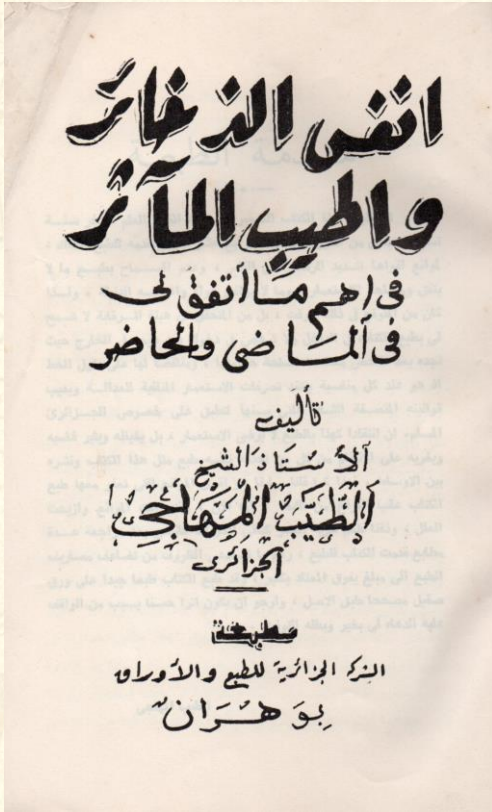 انفس الذخائر
واطيب المآثر
في اهم ما اتفق لى
فى الماضى والحاضر
تأليف
الأستاذ الشيخ
الطيب المهاجي
الجزائرى
مطبعة
الشركة الجزائرية للطبع والأوراق
بوهران